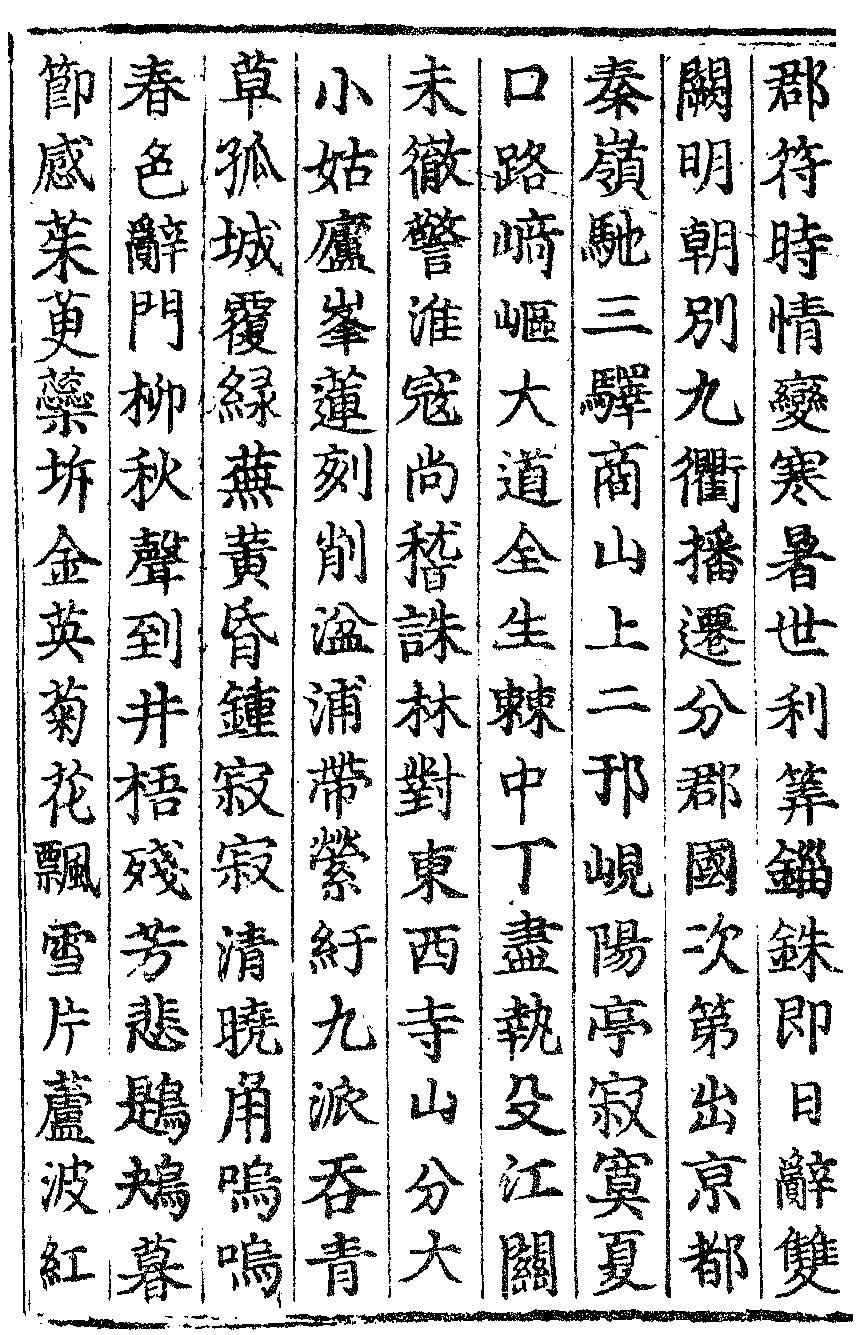 郡符時情變寒暑世利筭錙銖即日辭雙
闕明朝別九衢播遷分郡國次第出京都
秦嶺馳三驛商山上二邘峴陽亭寂寞夏
口路崎嶇大道全生棘中丁盡執殳江關
未徹警淮寇尚稽誅林對東西寺山分大
小姑廬峯蓮刻削湓浦帶縈紆九派吞青
草孤城覆緑蕪黄昏鍾寂寂清曉角嗚嗚
春色辭門柳秋聲到井梧殘芳悲鶗鴂暮
節感茱萸蘂坼金英菊花飄雪片蘆波紅